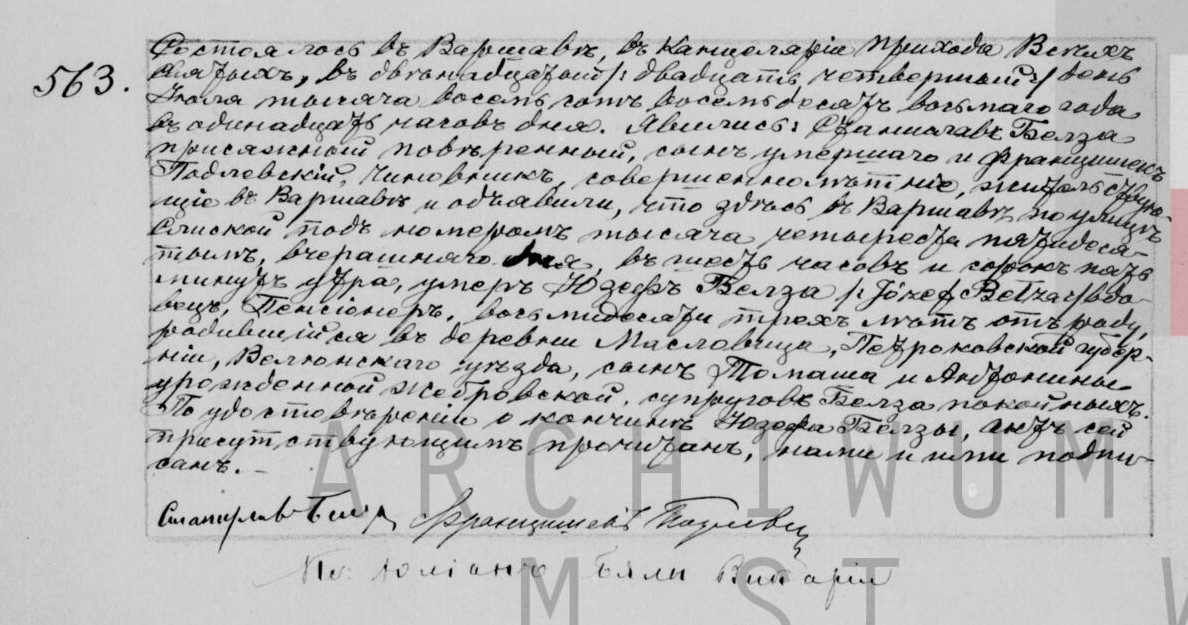 563.
Состоялось въ Варшавѣ, въ Канцеляріи прихода Всѣхъ
Святыхъ, въ двѣнадцатый /: двадцать четвертый :/ день
Іюля тысяча восемьсотъ восемьдесятъ восьмаго года
въ одинадцать часовъ дня. Явились: Станиславъ Белза
присяжный повѣренный, сынъ умершаго и Францишекъ
Подлевскій, Чиновникъ, совершеннолѣтніе, жительствую-
щіе въ Варшавѣ и объявили, что здѣсь въ Варшавѣ по улицѣ
подъ номеромъ тысяча четыреста пятидеся-
тымъ, вчерашняго дня, въ шесть часовъ и сорокъ пять
минутъ утра, умеръ Юзефъ Белза /: Józef Bełza :/ вдо-
вецъ, Пенсіонеръ, восьмидесяти трехъ лѣтъ отъ роду,
родившійся въ деревни Масловица, Петроковской губер-
ніи, Велюнскаго уѣзда, сынъ Томаша и Антонины
урожденной Жебровской, супруговъ Белза покойныхъ.
По удостовѣреніи о кончинѣ Юзефа Белзы, актъ сей
присутствующимъ прочитанъ, нами и ими подпи-
санъ. –
Станиславъ Белза Францишекъ Подлевскі
Юліанъ Бялы Викарій
ARCHIWUM
M ST W